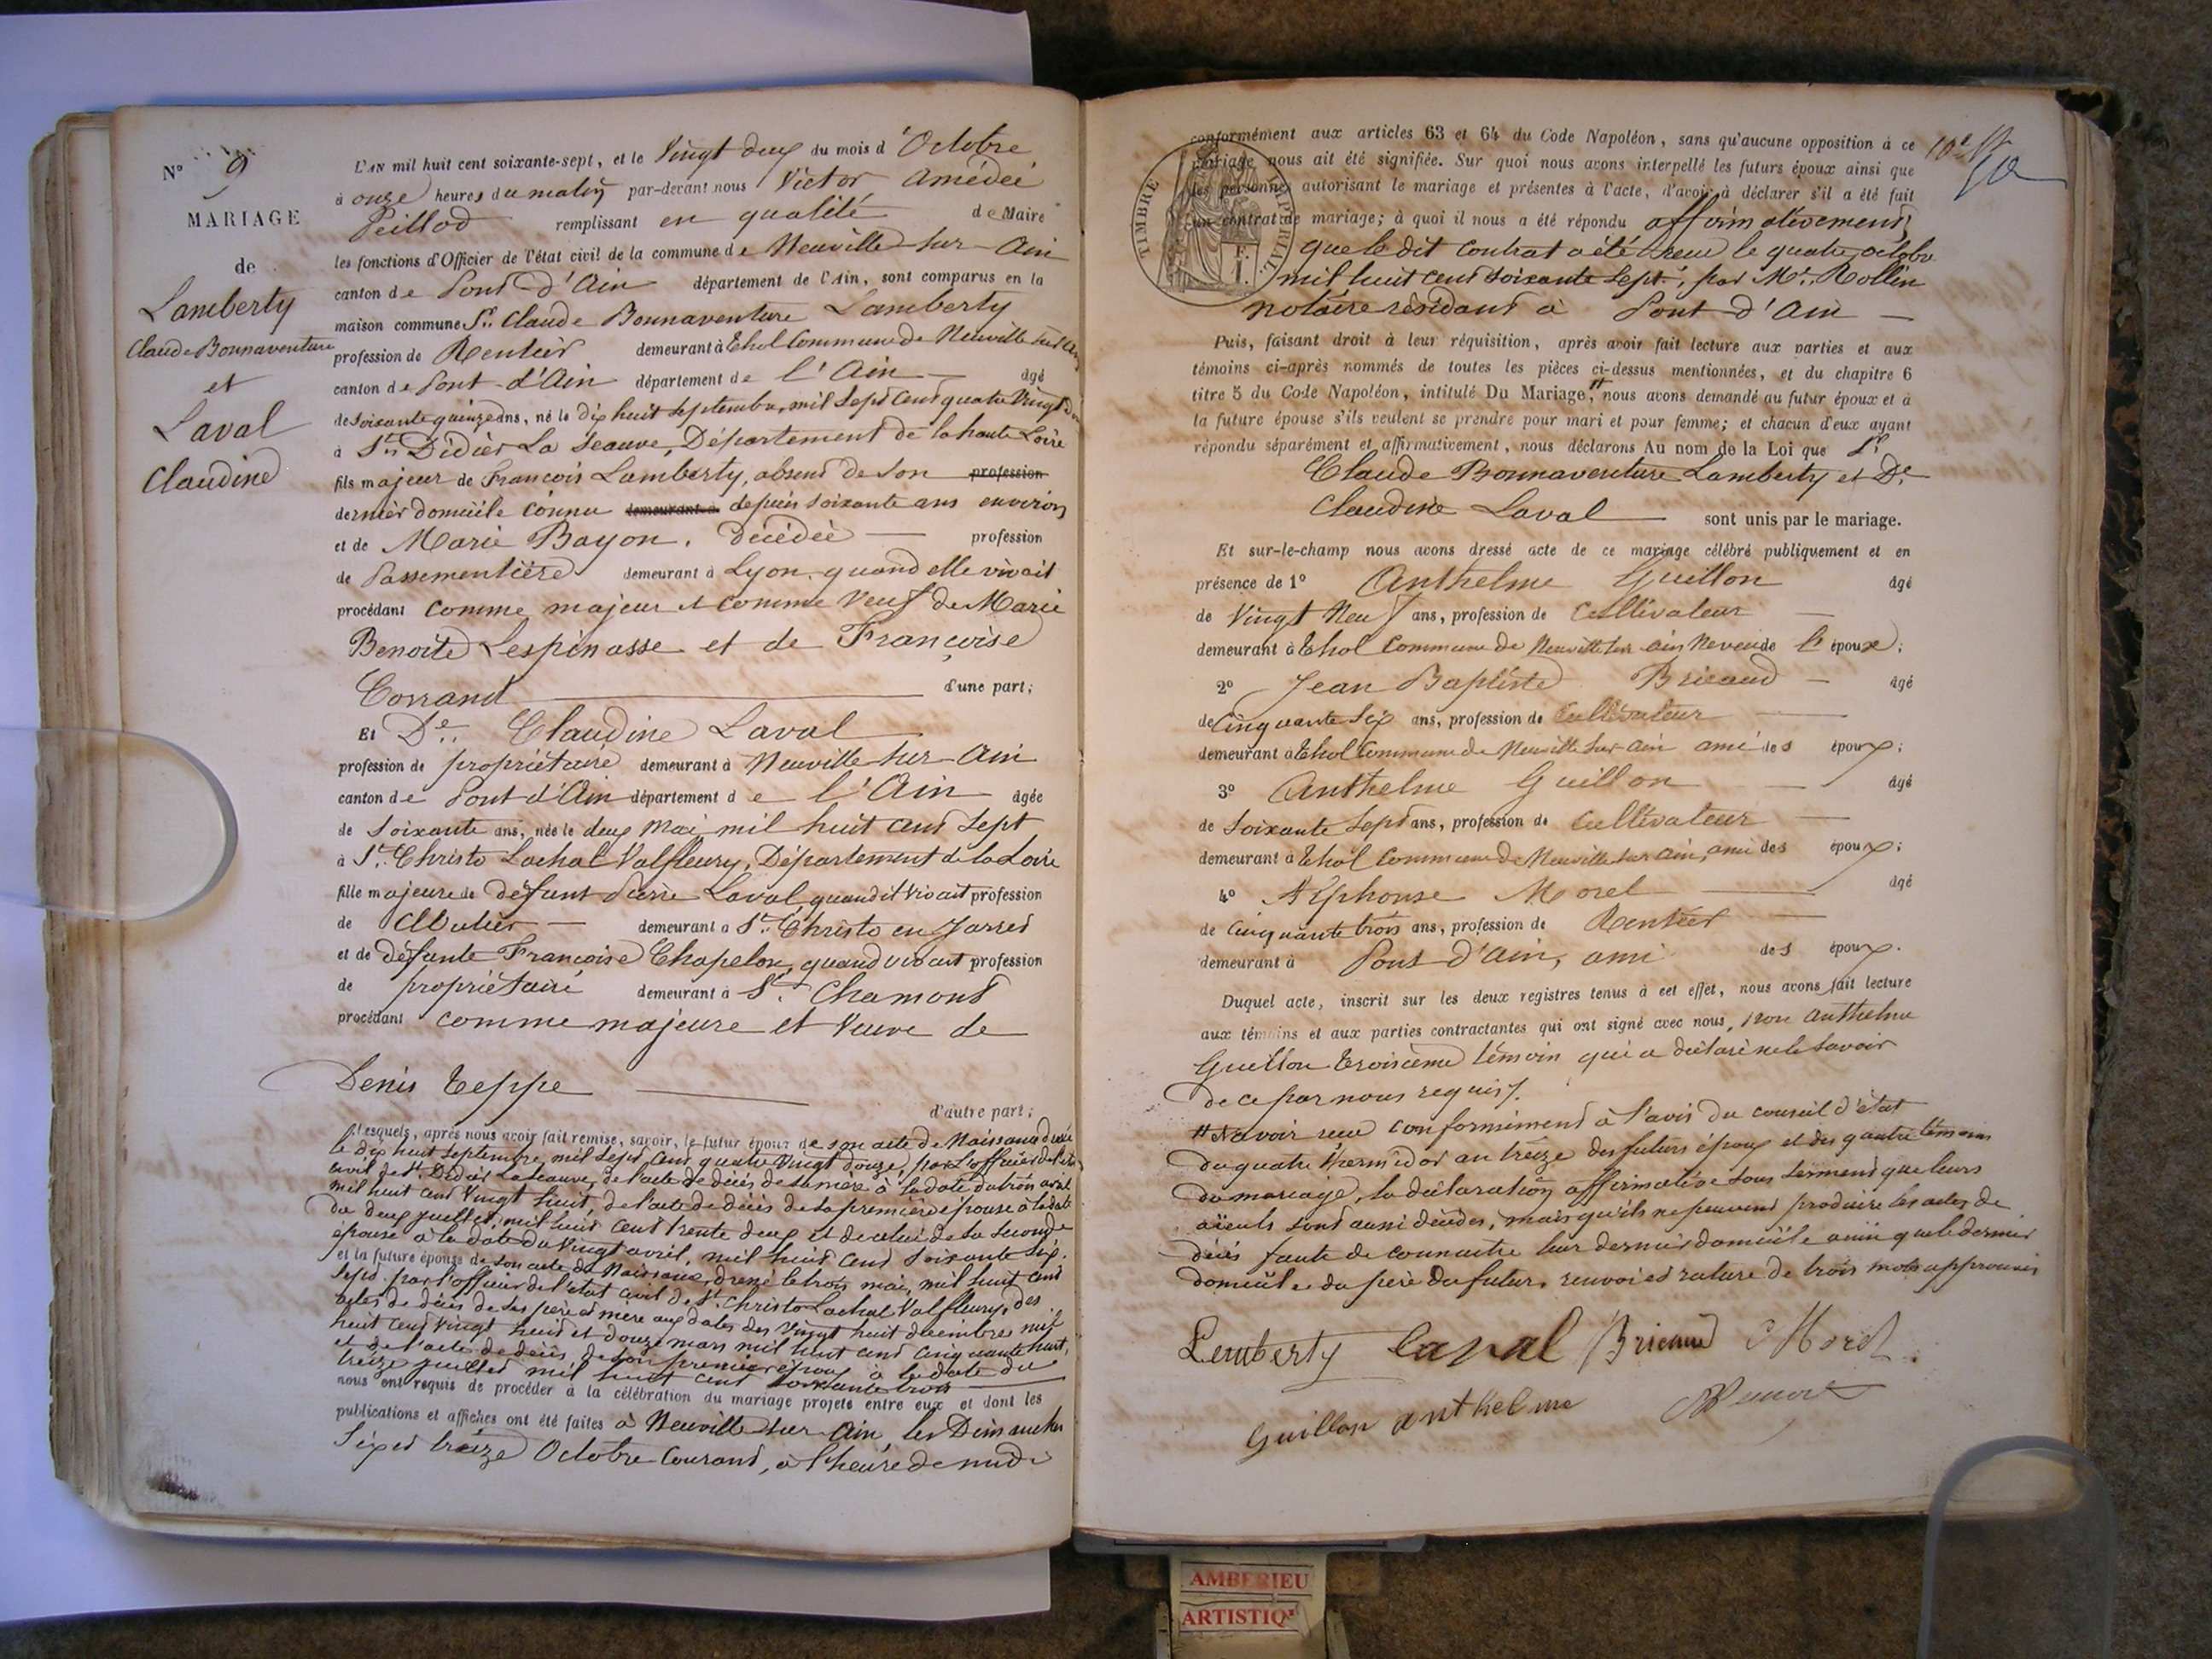 N° 9
MARIAGE
de
Lamberty
Claude Bonnaventure
et
Laval
Claudine
L'AN mil huit cent soixante-sept, et le Vingt deux du mois d'Octobre
à onze heures du matin par-devant nous Victor Amédée
Peillod remplissant en qualité de Maire
les fonctions d'Officier de l'état civil de la commune de Neuville sur Ain
canton de Pont d'Ain département de l'Ain, sont comparus en la
maison commune Sr. Claude Bonnaventure Lamberty
profession de Rentier demeurant à Thol Commune de Neuville sur Ain
canton de Pont-d'Ain département de l'Ain âgé
de soixante quinze ans, né le dix huit septembre, mil sept cent quatre vingt
à St Didier La Seauve, Département de la haute Loire
fils majeur de François Lamberty, absent de son profession
dernier domicile connu demeurant à depuis soixante ans environ
et de Marie Bayon, décédée profession
de Passementière demeurant à Lyon quand elle vivait
procédant comme majeur et comme Veuf de Marie
Benoite Lespinasse et de Françoise
Corrand d'une part;
Et De. Claudine Laval
profession de propriétaire demeurant à Neuville sur Ain
canton de Pont d'Ain département de l'Ain âgée
de Soixante ans, née le deux Mai mil huit cent sept
à St. Christo Lachal Valfleury, Département de la Loire
fille majeure de défunt Pierre Laval quand il vivait profession
de demeurant à St. Christo en Jarret
et de défunte Françoise Chapelon, quand vivait profession
de propriétaire demeurant à St. Chamont
procédant comme majeure et Veuve de
Denis Teppe
d'autre part;
Lesquels, après nous avoir fait remise, savoir, le futur époux de son acte de Naissance dressé
le dix huit Septembre, mil sept cent quatre vingt douze, par l'officier de l'état
civil de St. Didier Laseauve, de l'acte de décès de sa mère à la date du trois avril
mil huit cent vingt huit, de l'acte de décès de sa première épouse à la date
du deux juillet, mil huit cent trente deux et de celui de sa seconde
épouse à la date du vingt avril, mil huit cent soixante six.
et la future épouse de son acte de Naissance, dressé le trois mai, mil huit cent
sept par l'officier de l'état civil de St. Christo Lachal Valfleury, des
actes de décès de ses père et mère aux dates des vingt huit décembre mil
huit cent vingt huit et douze mars mil huit cent cinquante huit,
et de l'acte de décès de son premier époux à la date du
treize juillet mil huit cent soixante trois
nous ont requis de procéder à la célébration du mariage projeté entre eux et dont les
publications et affiches ont été faites à Neuville sur Ain, les Dimanches
six et treize Octobre Courant, à l'heure de midi
conformément aux articles 63 et 64 du Code Napoléon, sans qu'aucune opposition à ce
mariage nous ait été signifiée. Sur quoi nous avons interpellé les futurs époux ainsi que
les personnes autorisant le mariage et présentes à l'acte, d'avoir à déclarer s'il a été fait
un contrat de mariage; à quoi il nous a été répondu affirmativement,
que le dit Contrat a été reçu le quatre octobre
mil huit cent soixante sept, par Mr. Rollin
notaire résidant à Pont d'Ain
TIMBRE IMPÉRIAL
1 F.
Puis, faisant droit à leur réquisition, après avoir fait lecture aux parties et aux
témoins ci-après nommés de toutes les pièces ci-dessus mentionnées, et du chapitre 6
titre 5 du Code Napoléon, intitulé Du Mariage, # nous avons demandé au futur époux et à
la future épouse s'ils veulent se prendre pour mari et pour femme; et chacun d'eux ayant
répondu séparément et affirmativement, nous déclarons Au nom de la Loi que Sr
Claude Bonnaventure Lamberty et De
Claudine Laval sont unis par le mariage.
Et sur-le-champ nous avons dressé acte de ce mariage célébré publiquement et en
présence de 1° Anthelme Guillon âgé
de Vingt Neuf ans, profession de Cultivateur
demeurant à Thol Commune de Neuville sur Ain Neveu de l'époux;
2° Jean Baptiste Bricaud âgé
de Cinquante Six ans, profession de Cultivateur
demeurant à Thol Commune de Neuville sur Ain ami des époux;
3° Anthelme Guillon âgé
de Soixante Sept ans, profession de Cultivateur
demeurant à Thol Commune de Neuville sur Ain, ami des époux;
4° Alphonse Morel âgé
de Cinquante trois ans, profession de Rentier
demeurant à Pont d'Ain, ami des époux.
Duquel acte, inscrit sur les deux registres tenus à cet effet, nous avons fait lecture
aux témoins et aux parties contractantes qui ont signé avec nous, non Anthelme
Guillon troisième témoin qui a déclaré ne le savoir
de ce par nous requis.
# avoir reçu conformément à l'avis du conseil d'état
du quatre thermidor an treize des futurs époux et des quatre témoins
du mariage, la déclaration affirmative sous serment que leurs
aïeuls sont aussi décédés, mais qu'ils ne peuvent produire les actes de
décès faute de connaitre leur dernier domicile ainsi que le dernier
domicile du père du futur, renvoi et rature de trois mots approuvés
Lamberty Laval Bricaud Morel
Guillon anthelme
AMBERIEU
ARTISTIQ